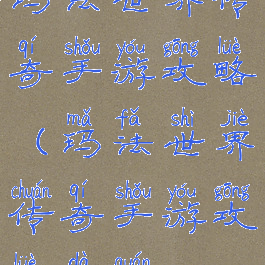 qí shǒu yóu gōng lüè
奇手游攻略
mǎ fǎ shì jiè
(玛法世界
chuán qí shǒu yóu gōng
传奇手游攻